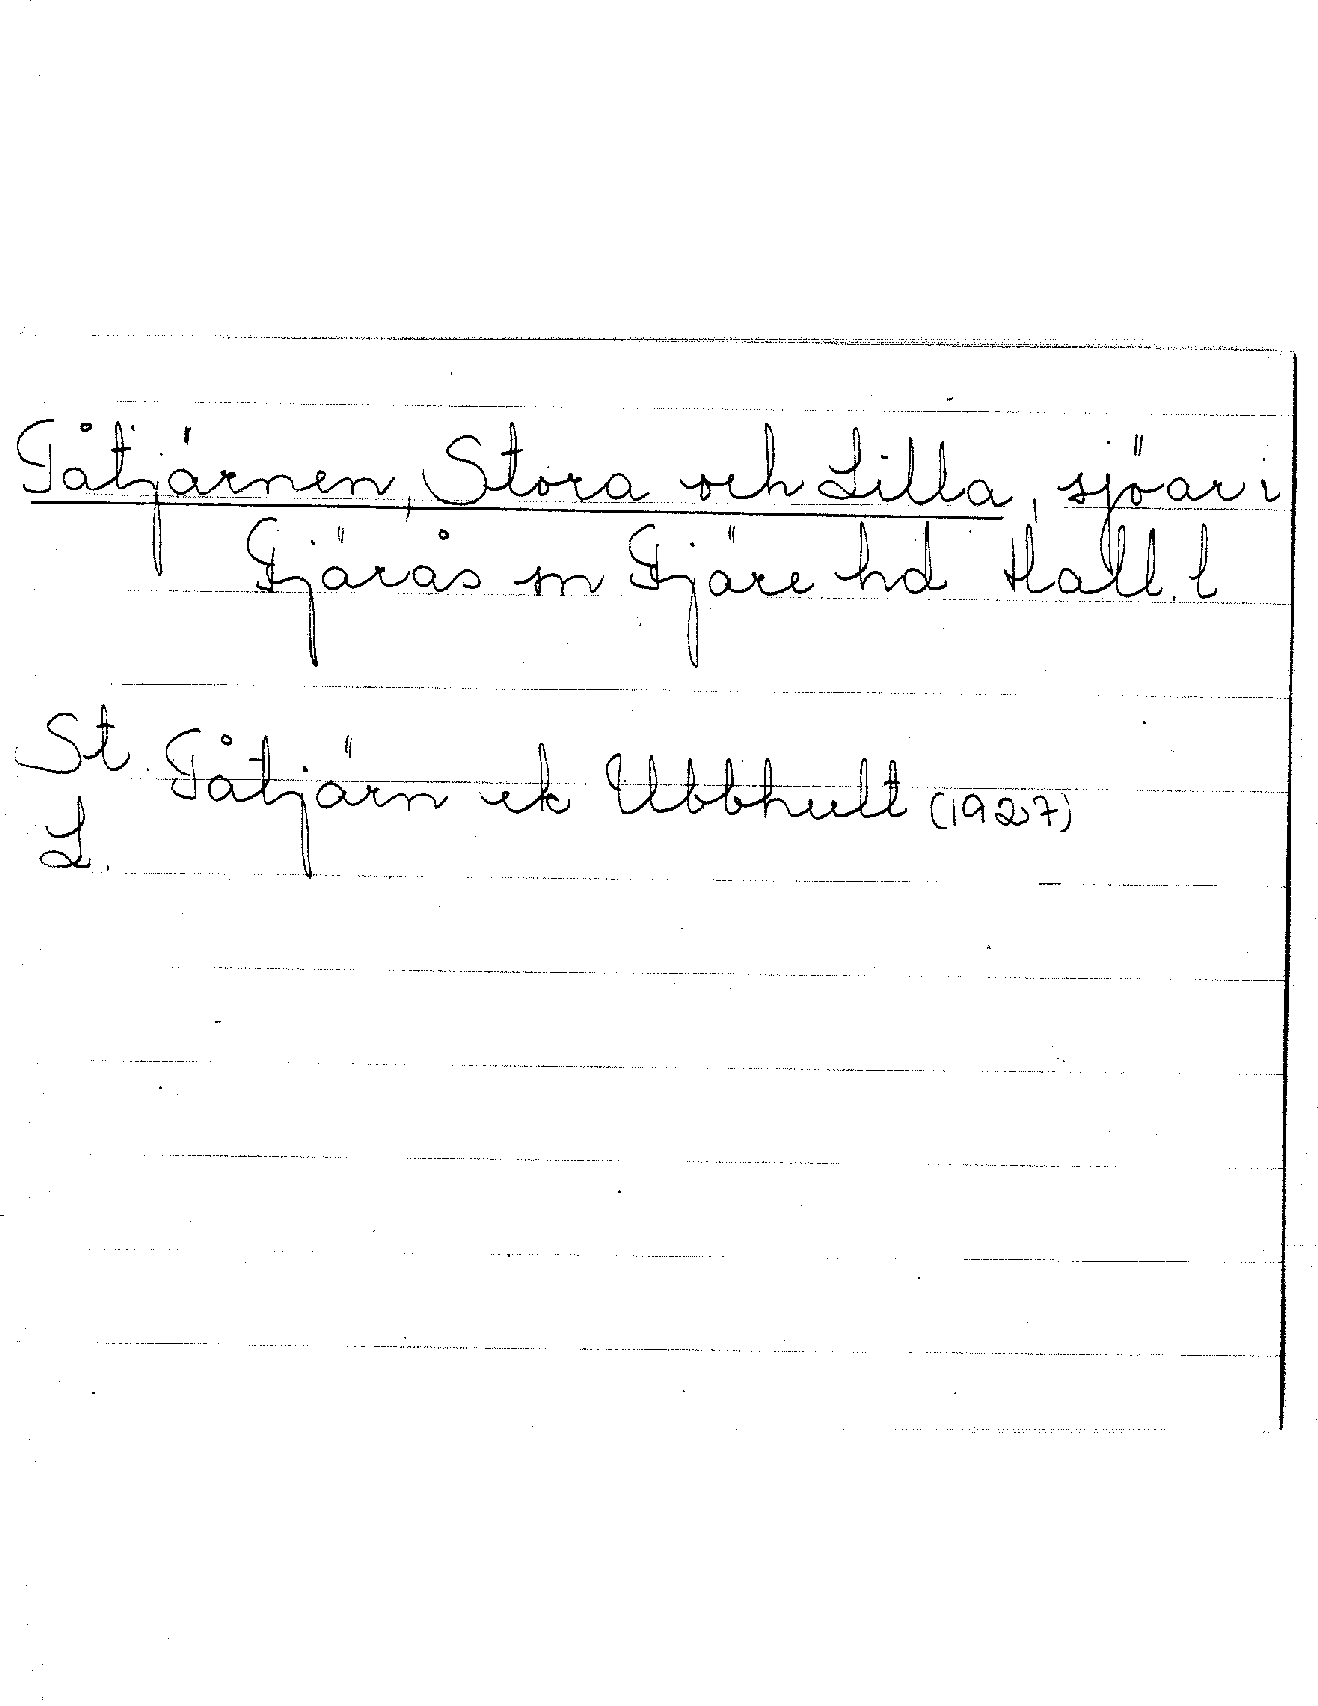 Fåtjärnen, Stora och Lilla, sjöar i
Fjärås sn Fjäre hd Hall. l
St. Fåtjärn ek Ubbhult (1927)
L.